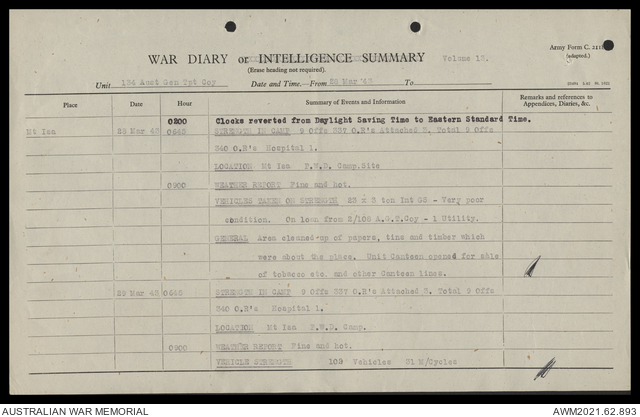 Army Form C. 2118
(adapted.)
WAR DIARY or INTELLIGENCE SUMMARY Volume 12.
(Erase heading not required).
Unit 134 Aust Gen Tpt Coy Date and Time.—From 28 Mar '43 To
Place Date Hour Summary of Events and Information Remarks and references to
Appendices, Diaries, &c.
0200 Clocks reverted from Daylight Saving Time to Eastern Standard Time.
Mt Isa 28 Mar 43 0645 STRENGTH IN CAMP 9 Offs 337 O.R's Attached 3. Total 9 Offs
340 O.R's Hospital 1.
LOCATION Mt Isa P.W.D. Camp.Site
0900 WEATHER REPORT Fine and hot.
VEHICLES TAKEN ON STRENGTH x 3 ton Int GS - Very poor
condition. On loan from 2/108 A.G.T.Coy - 1 Utility.
GENERAL Area cleaned-up of papers, tins and timber which
were about the place. Unit Canteen opened for sale
of tobacco etc. and other Canteen lines.
29 Mar 43 0645 STRENGTH IN CAMP 9 Offs 337 O.R's Attached 3. Total 9 Offs
340 O.R's Hospital 1.
LOCATION Mt Isa P.W.D. Camp.
0900 WEATHER REPORT Fine and hot.
VEHICLE STRENGTH 102 Vehicles 21 M/Cycles
AUSTRALIAN WAR MEMORIAL AWM2021.62.893